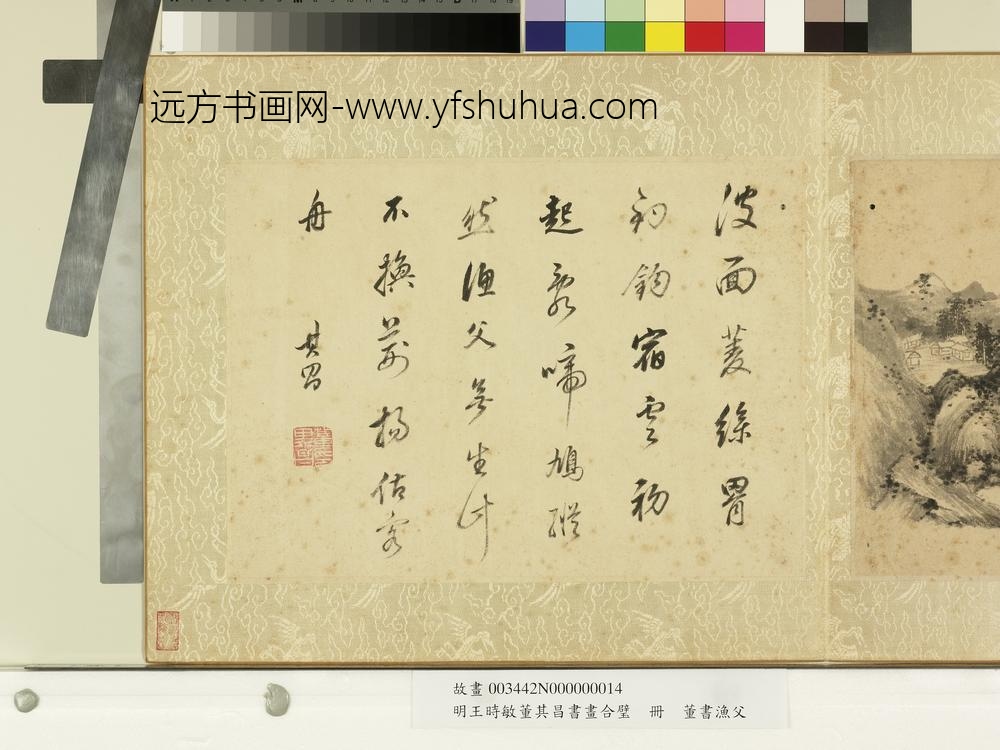 远方书画网-www.yfshuhua.com
波面菱絲罥
釣鉤宿雲初
起衆啼鳩縱
然漁父無生計
不換荊揚估客
舟
其昌
故畫003442N000000014
明王時敏董其昌書畫合璧 冊 董書漁父